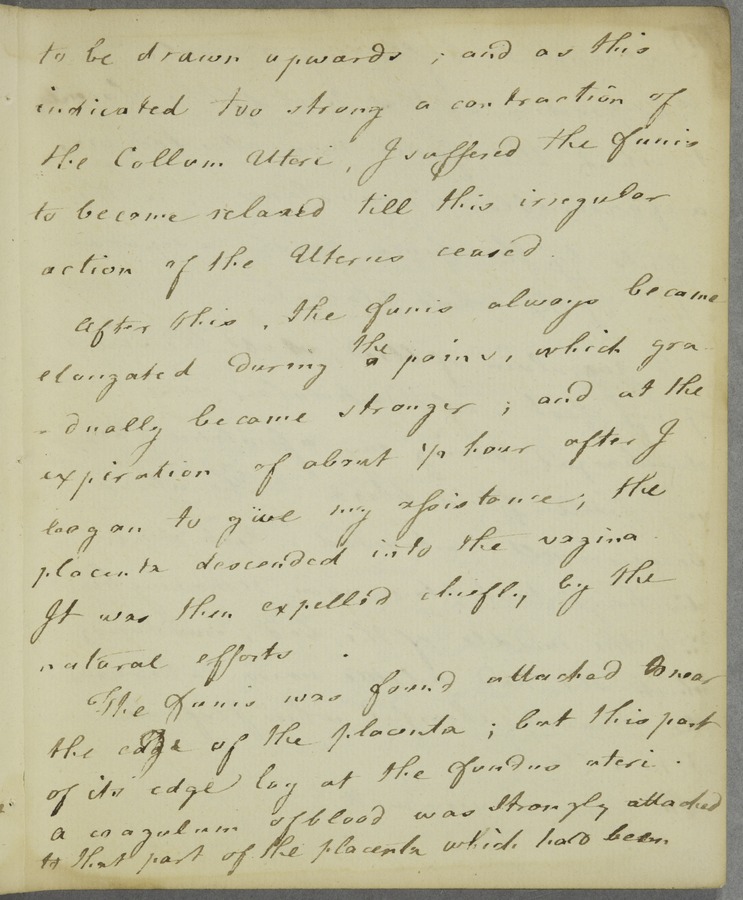 to be drawn upwards ; and as this
indicated too strong a contraction of
the Collum Uteri , I suffered the funis
to become relaxed till this irregular
action of the Uterus ceased .
After this , the funis always became
elongated during the pains , which gra
- dually became stronger ; and at the
expiration of about 1/2 hour after I
began to give my assistance , the
placenta descended into the vagina .
It was then expelled chiefly by the
natural efforts .
The funis was found attached near
the edge of the placenta ; but this part
of its edge lay at the fundus uteri .
a coagulum of blood was strongly attached
to that part of the placenta which had been